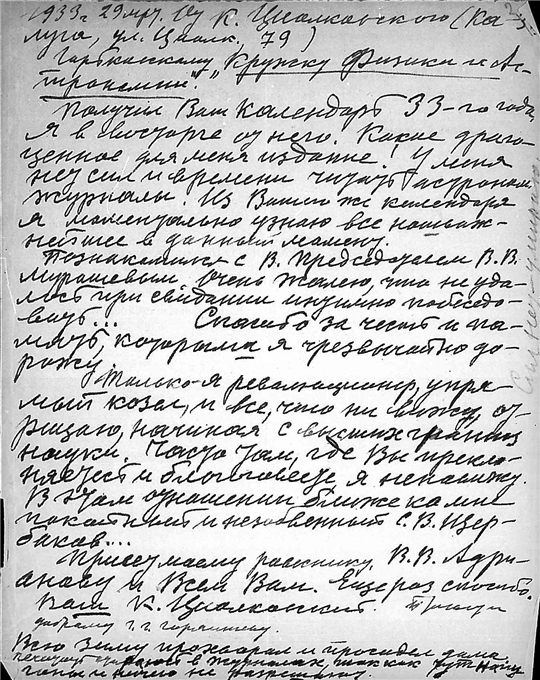 1933 г. 29 мрт. От К. Циолковского (Ка-
луга, ул. Циолк., 79)
Горьковскому Кружку Физики и Ас-
трономии.
Получил Ваш Календарь 33-го года,
Я в восторге от него. Какое драго-
ценное для меня издание! У меня
нет сил и времени читать астроном.
журналы. Из Вашего же календаря
я моментально узнаю все наиваж-
нейшее в данный момент.
Познакомился с В. Председателем В. В.
Мурашевым. Очень жалею, что не уда-
лось при свидании интимно побеседо-
вать... Спасибо за честь и па-
мять, которыми я чрезвычайно до-
рожу.
Только я революционер, упря-
мый козел, и все, что ни вижу, от-
рицаю, начиная с высших границ
науки. Часто там, где Вы прекло-
няетесь и благоговеете, я ненавижу.
В этом отношении ближе ко мне
покойный и незабвенный С. В. Щер-
баков...
Привет моему В. В. Адри-
анову и Всем Вам. Еще раз спасибо.
Ваш К. Циолковский.
доброму г. г. Горяинову.
Всю зиму прохворал и просидел дома.
в журналах, так как
и ничего не